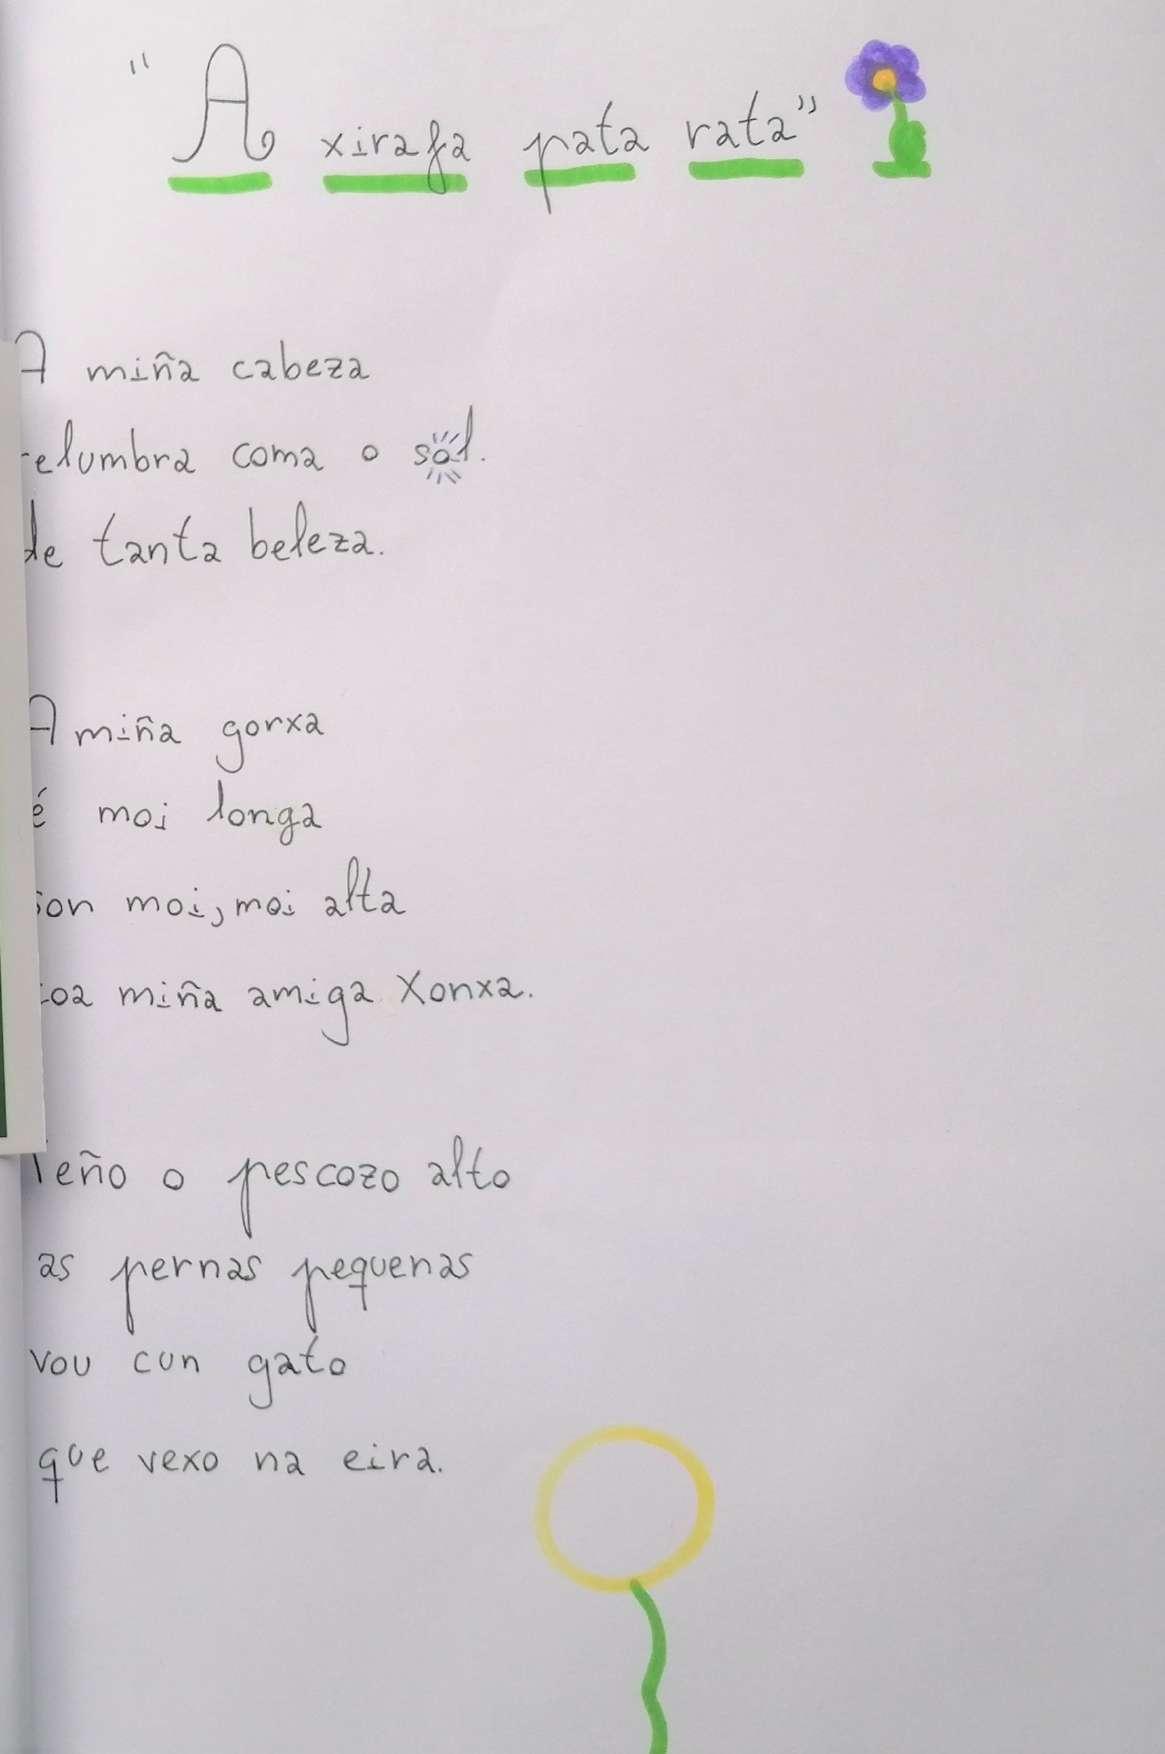 "A xirafa pata rata"
A miña cabeza
relumbra coma o sol.
de tanta beleza.
A miña gorxa
é moi longa
son moi, moi alta
coa miña amiga Xonxa.
Teño o pescozo alto
as pernas pequenas
vou cun gato
que vexo na eira.